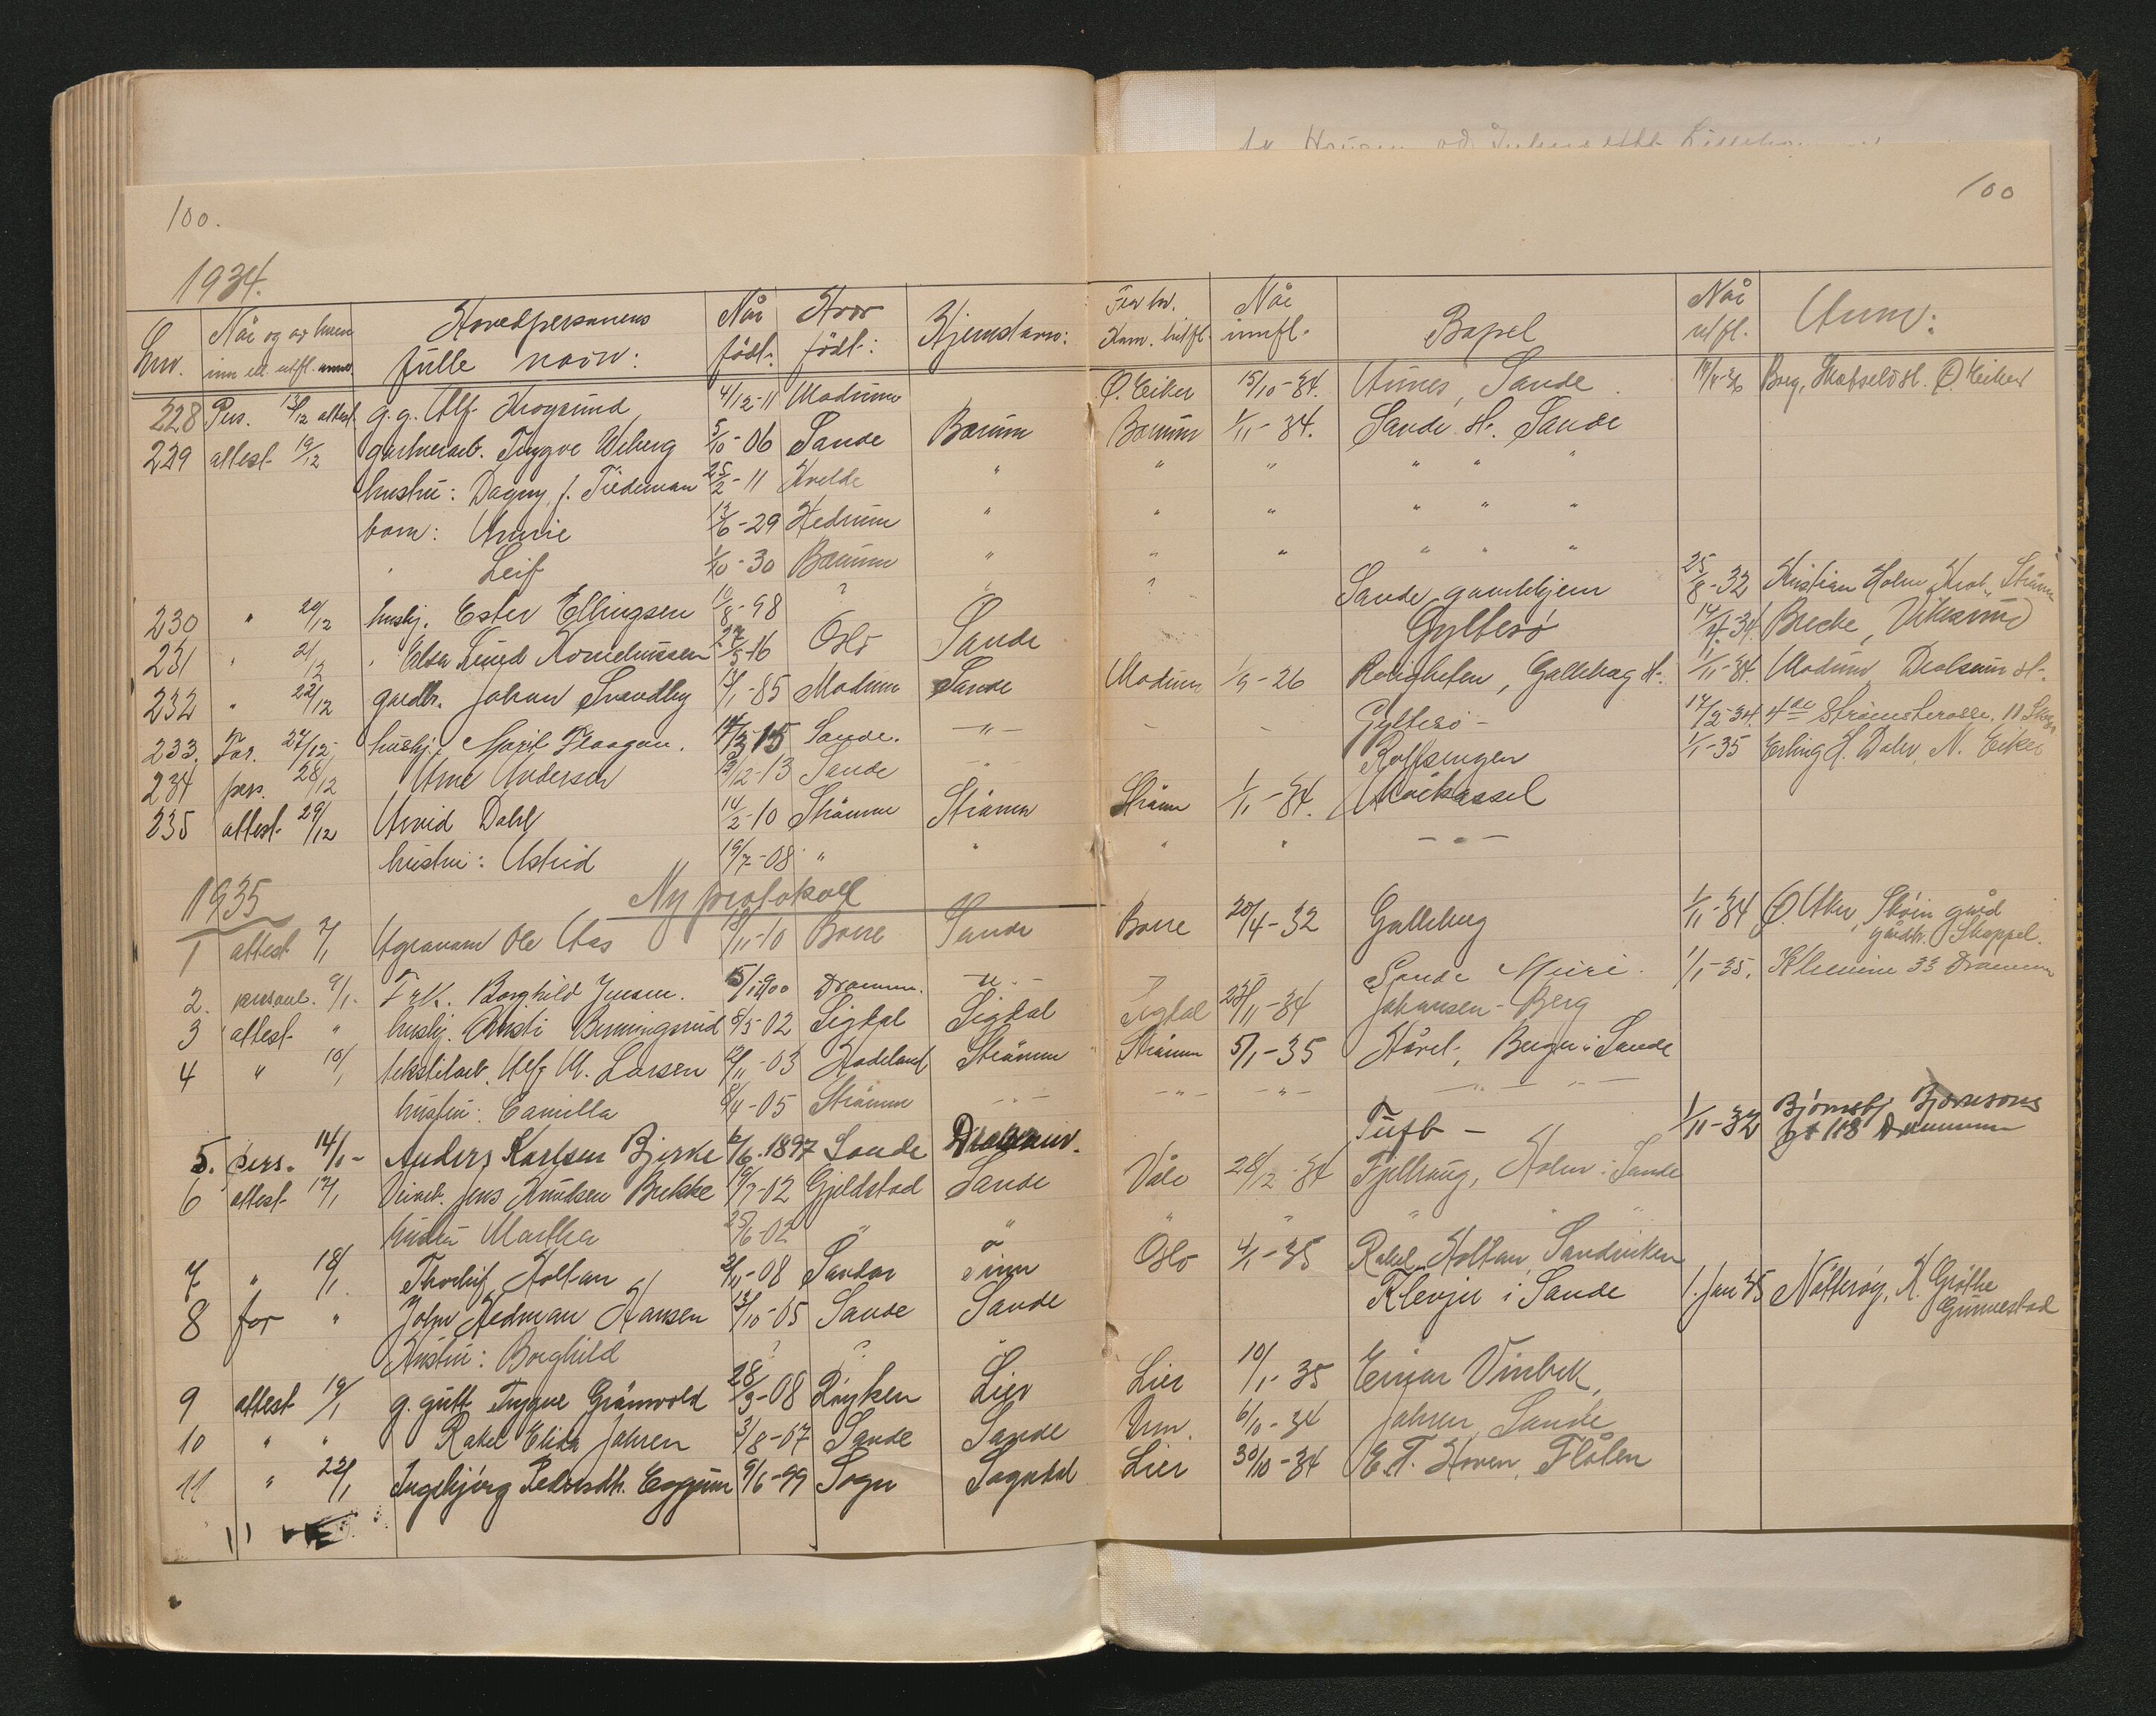 100. 100
1934.
Lnr. Når og av hvem inn el. utfl. anm. Hovedpersonens fulle navn: Når født: Hvor født: Hjemstavn: Når innfl. Bopel Når utfl. Anm:
228 Pers. 13/12 attest. g.g. Alf Krogsund 4/12-11 Modum Ø. Eiker 15/10-34. Aunes, Sande Borg, Skotselv st. Ø. Eiker
229 attest 19/12 gartnerarb. Trygve Weberg 5/10-06 Sande Bærum Bærum 1/11-34. Sande st. Sande
hustru: Dagny f. Tiedeman 25/2-11 Kvelde " " " " " "
barn: Annie 12/6-29 Hedrum " " " " " "
" Leif 1/10-30 Bærum " " " " " "
230 " 20/12 hushj. Ester Ellingsen 10/8-98 ? ? ? Sande gamlehjem 25/8-32 Kristian Holm, Strømm
231 " 21/12 " Elsa Korneliussen 27/5-16 Oslo Sande Gyltesø 14/4-34. Brecke, Vikesund
232 " 22/12 gårdbr. Johan Svendby 13/1-85 Modum Sande Modum 1/5-26 Roligheten, Galleberg st. 1/11-34. Modum, Drolsum st.
233. For. 27/12 hushj. Marit Flaagan. 17/3 15 Sande. -"- - - Gyltesø - 17/2-34. 4de Strømsterasse. 11 Skog
234 pers. 28/12 Arne Andersen 12/12-13 Sande -"- Rolfsengen 1/1-35 Erling H. Dahr, N. Eiker
235 attest 29/12 Arvid Dahl 14/2-10 Strømm Strømm Strømm 1/1-34. Mørkassel
hustru: Astrid 19/7-08 " " " " - " -
1935 Ny protokoll
1 attest 7/1 Agronom Ole Aas 18/11-10 Borre Sande Borre 20/4-32 Galleberg 1/11-34 Ø. Aker, Skøin gård
gårdbr. Skappel.
2. personl. 9/1. Frk. Borghild Jensen. 5/1 1900 Drammen. -"- - - Sande Meieri. 1/1-35. Klemine 33 Drammen
3 attest " hushj. Kristi Benningsrud 8/5-02 Sigdal Sigdal Sigdal 23/11-34 Johansen-Berg
4 " 10/1 tekstilarb. Alf M. Larsen 12/11-03 Hadeland Strømm Strømm 5/1-35 Håvet, Bergn i Sande
hustru: Camilla 8/4-05 Strømm -"- -"- -"- - " - " -
5. pers. 14/1- Anders Karlsen Bjerke 6/6.1897 Sande Drammen. Tuft - 1/11-32 Bjørnstj Bjørnsons
gt 118 Drammen
6 attest 17/1 Veiarb. Jens Knutsen Brekke 19/7-02 Gjeldstad Sande Våle 28/12-34 Fjelltang, Holm i Sande
hustru Martha 25/6-02 " " " " " " "
7 " 18/1 Thorleif Holtan 21/11-08 Sandar Tinn Oslo 4/1-35 Rakel Holtan, Sandviken
8 for " John Hedman Hansen 13/10-05 Sande Sande Klevjer i Sande 1. jan 35 Nøtterøy, K. Grøthe
Gunnestad
Hustru: Borghild ? ? "
9 attest 19/1 g. gutt Trygve Grønvold 28/3-08 Røyken Lier Lier 10/1-35 Einar Vinbek,
10 " " Rakel Elida Jahren 3/8-07 Sande Sande Drm. 6/10-34 Jahren, Sande
11 " 22/1 Ingebjørg Pedersdtr. Eggum 9/6-99 Sogn Sogndal Lier 30/10-34 E. T. Hoven, Flåten